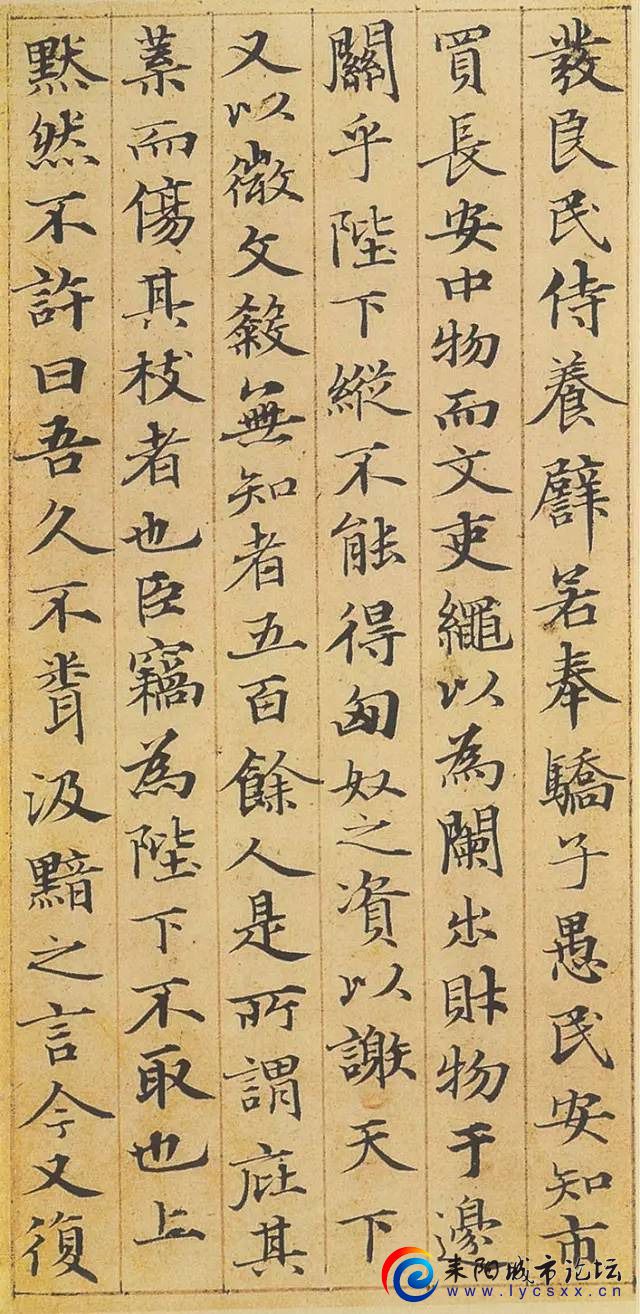 發良民侍養譬若奉驕子愚民安知市
買長安中物而文吏繩以為闌出財物于邊
關乎陛下縱不能得匈奴之資以謝天下
又以微文殺無知者五百餘人是所謂庇其
葉而傷其枝者也臣竊為陛下不取也上
默然不許曰吾久不聞汲黯之言今又復
耒阳城市论坛
www.lycsxx.cn